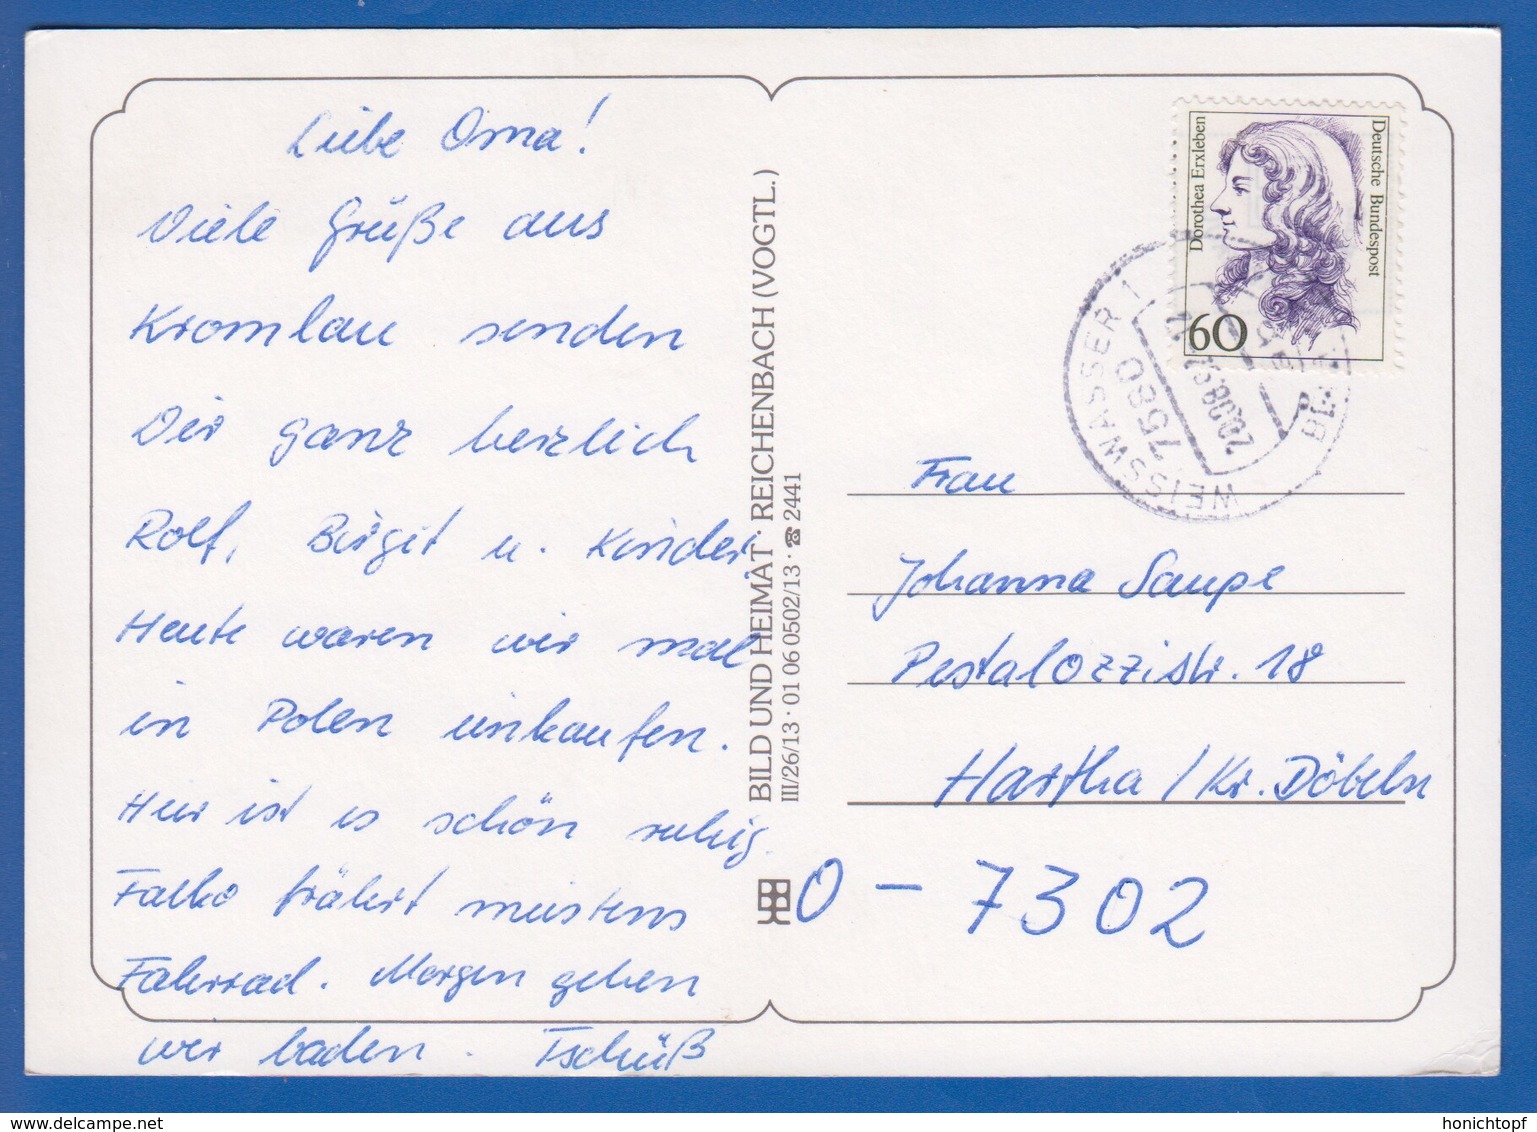 Liebe Oma!
Viele Grüße aus
Kromlau senden
Dir ganz herzlich
Rolf, Birgit u. Kinder.
Heute waren wir mal
in Polen einkaufen.
Hier ist es schön ruhig.
Falko fährt meistens
Fahrrad. Morgen gehen
wir baden. Tschüß
BILD UND HEIMAT · REICHENBACH (VOGTL.)
III/26/13 · 01 06 0502/13 · ☎ 2441
Dorothea Erxleben
Deutsche Bundespost
60
WEISSWASSER 1
7580
20.08.
Frau
Johanna Saupe
Pestalozzistr. 18
Hartha / Kr. Döbeln
O - 7302
delcampe.net
honichtopf